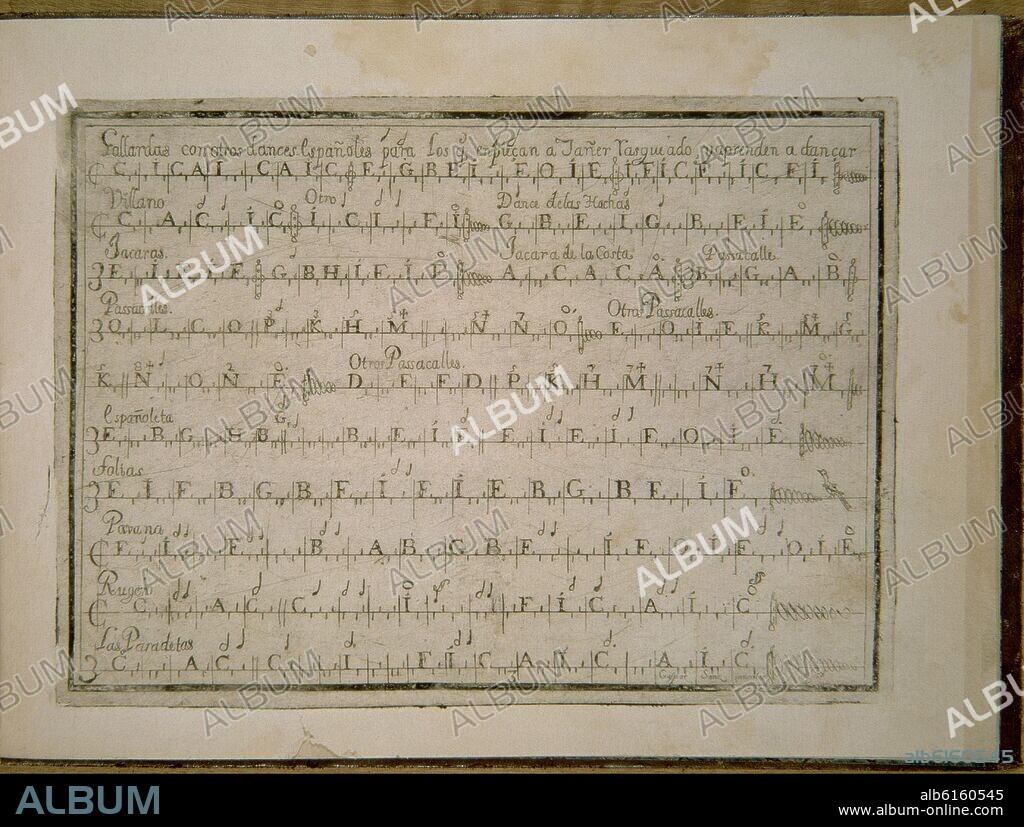 Gallardas con otros dances Españoles para Los q̃ empieçan a Tañer Rasgueado y aprenden a dançar
C I C A I C A I C E I G B E I E O I E I F I C F I C F I
Villano Otro Dance de las Hachas
C A C I C I C I F I G B E I G B E I E
Jacaras. Jacara de la Costa Passacalle
3 E I E G B H I E I E A C A C A B G A B
Passacalles. Otros Passacalles.
3 O L C O P K H M N N O E O I E K M G
Otros Passacalles.
K N O N E D E E D P K H M N H M
Españoleta
3 E B G G B B E I E I E I E O I E
folias
3 E I E B G B E I E I E B G B E I E
Pavana
C E I E B A B C B E I E O I E O I E
Rugero
C C A C C I F I C A I C
Las Paradetas
3 C A C C I I F I C A I C A I C
Gaspar Sanz
ALBUM
alb6160545
www.album-online.com